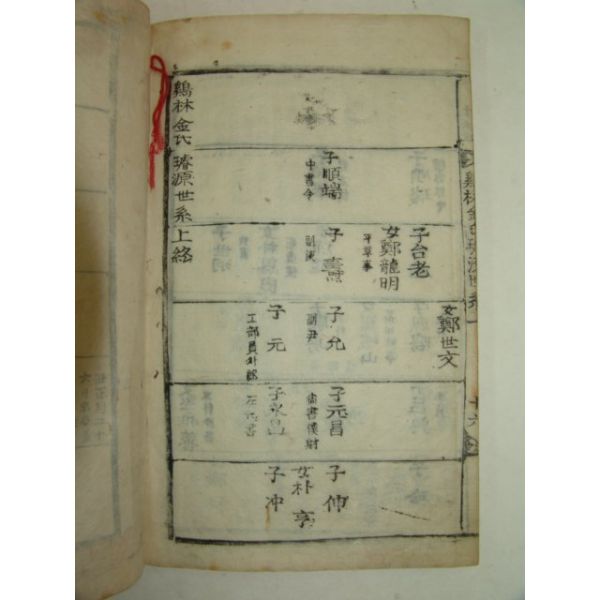 鷄林金氏璿源世系一
十六
子順端
中書令
子台老
女鄭龍明
平章事
子壽
副使
女鄭世文
子允
副尹
子元
工部員外郞
子元昌
尙書僕射
子永昌
子仲
女朴亨
子冲
鷄林金氏璿源世系上終